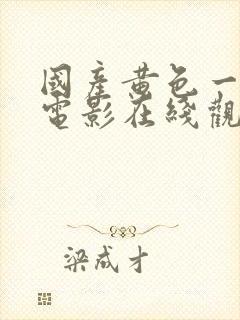 國產黄色一
電影在綫觀
梁成才